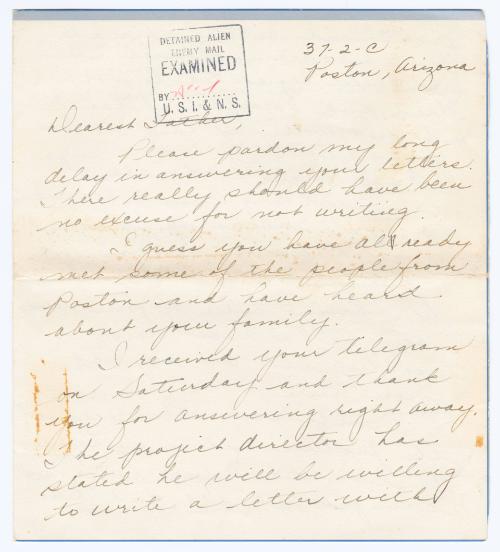 DETAINED ALIEN
ENEMY MAIL
EXAMINED
BY
U. S. I. & N. S.
37-2-C
Poston, Arizona
Dearest Father,
Please pardon my long
delay in answering your letters.
There really should have been
no excuse for not writing.
I guess you have all ready
met some of the people from
Poston and have heard
about your family.
I received your telegram
on Saturday and thank
you for answering right away.
The project director has
stated he will be willing
to write a letter with